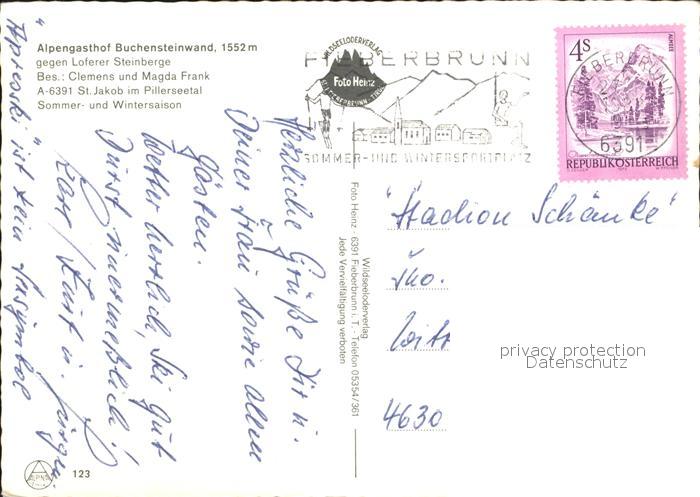 Alpengasthof Buchensteinwand, 1552 m
gegen Loferer Steinberge
Bes.: Clemens und Magda Frank
A-6391 St. Jakob im Pillerseetal
Sommer- und Wintersaison
WILDSEELODERVERLAG
Foto Heinz
FIEBERBRUNN
SOMMER- UND WINTERSPORTPLATZ
4S
ALMSEE
FIEBERBRUNN
6391
REPUBLIK ÖSTERREICH
Herzliche Grüße Dir u.
Deiner Frau sowie allen
Gästen.
Wetter herrlich, Ski gut
Durst unermeßlich!
Karl / Kurt u.
"Apreski ist kein
Wildseeloderverlag
Foto Heinz · 6391 Fieberbrunn i. T. - Telefon 05354/361
Jede Vervielfältigung verboten
"Stadion Schänke"
4630
privacy protection
Datenschutz
123